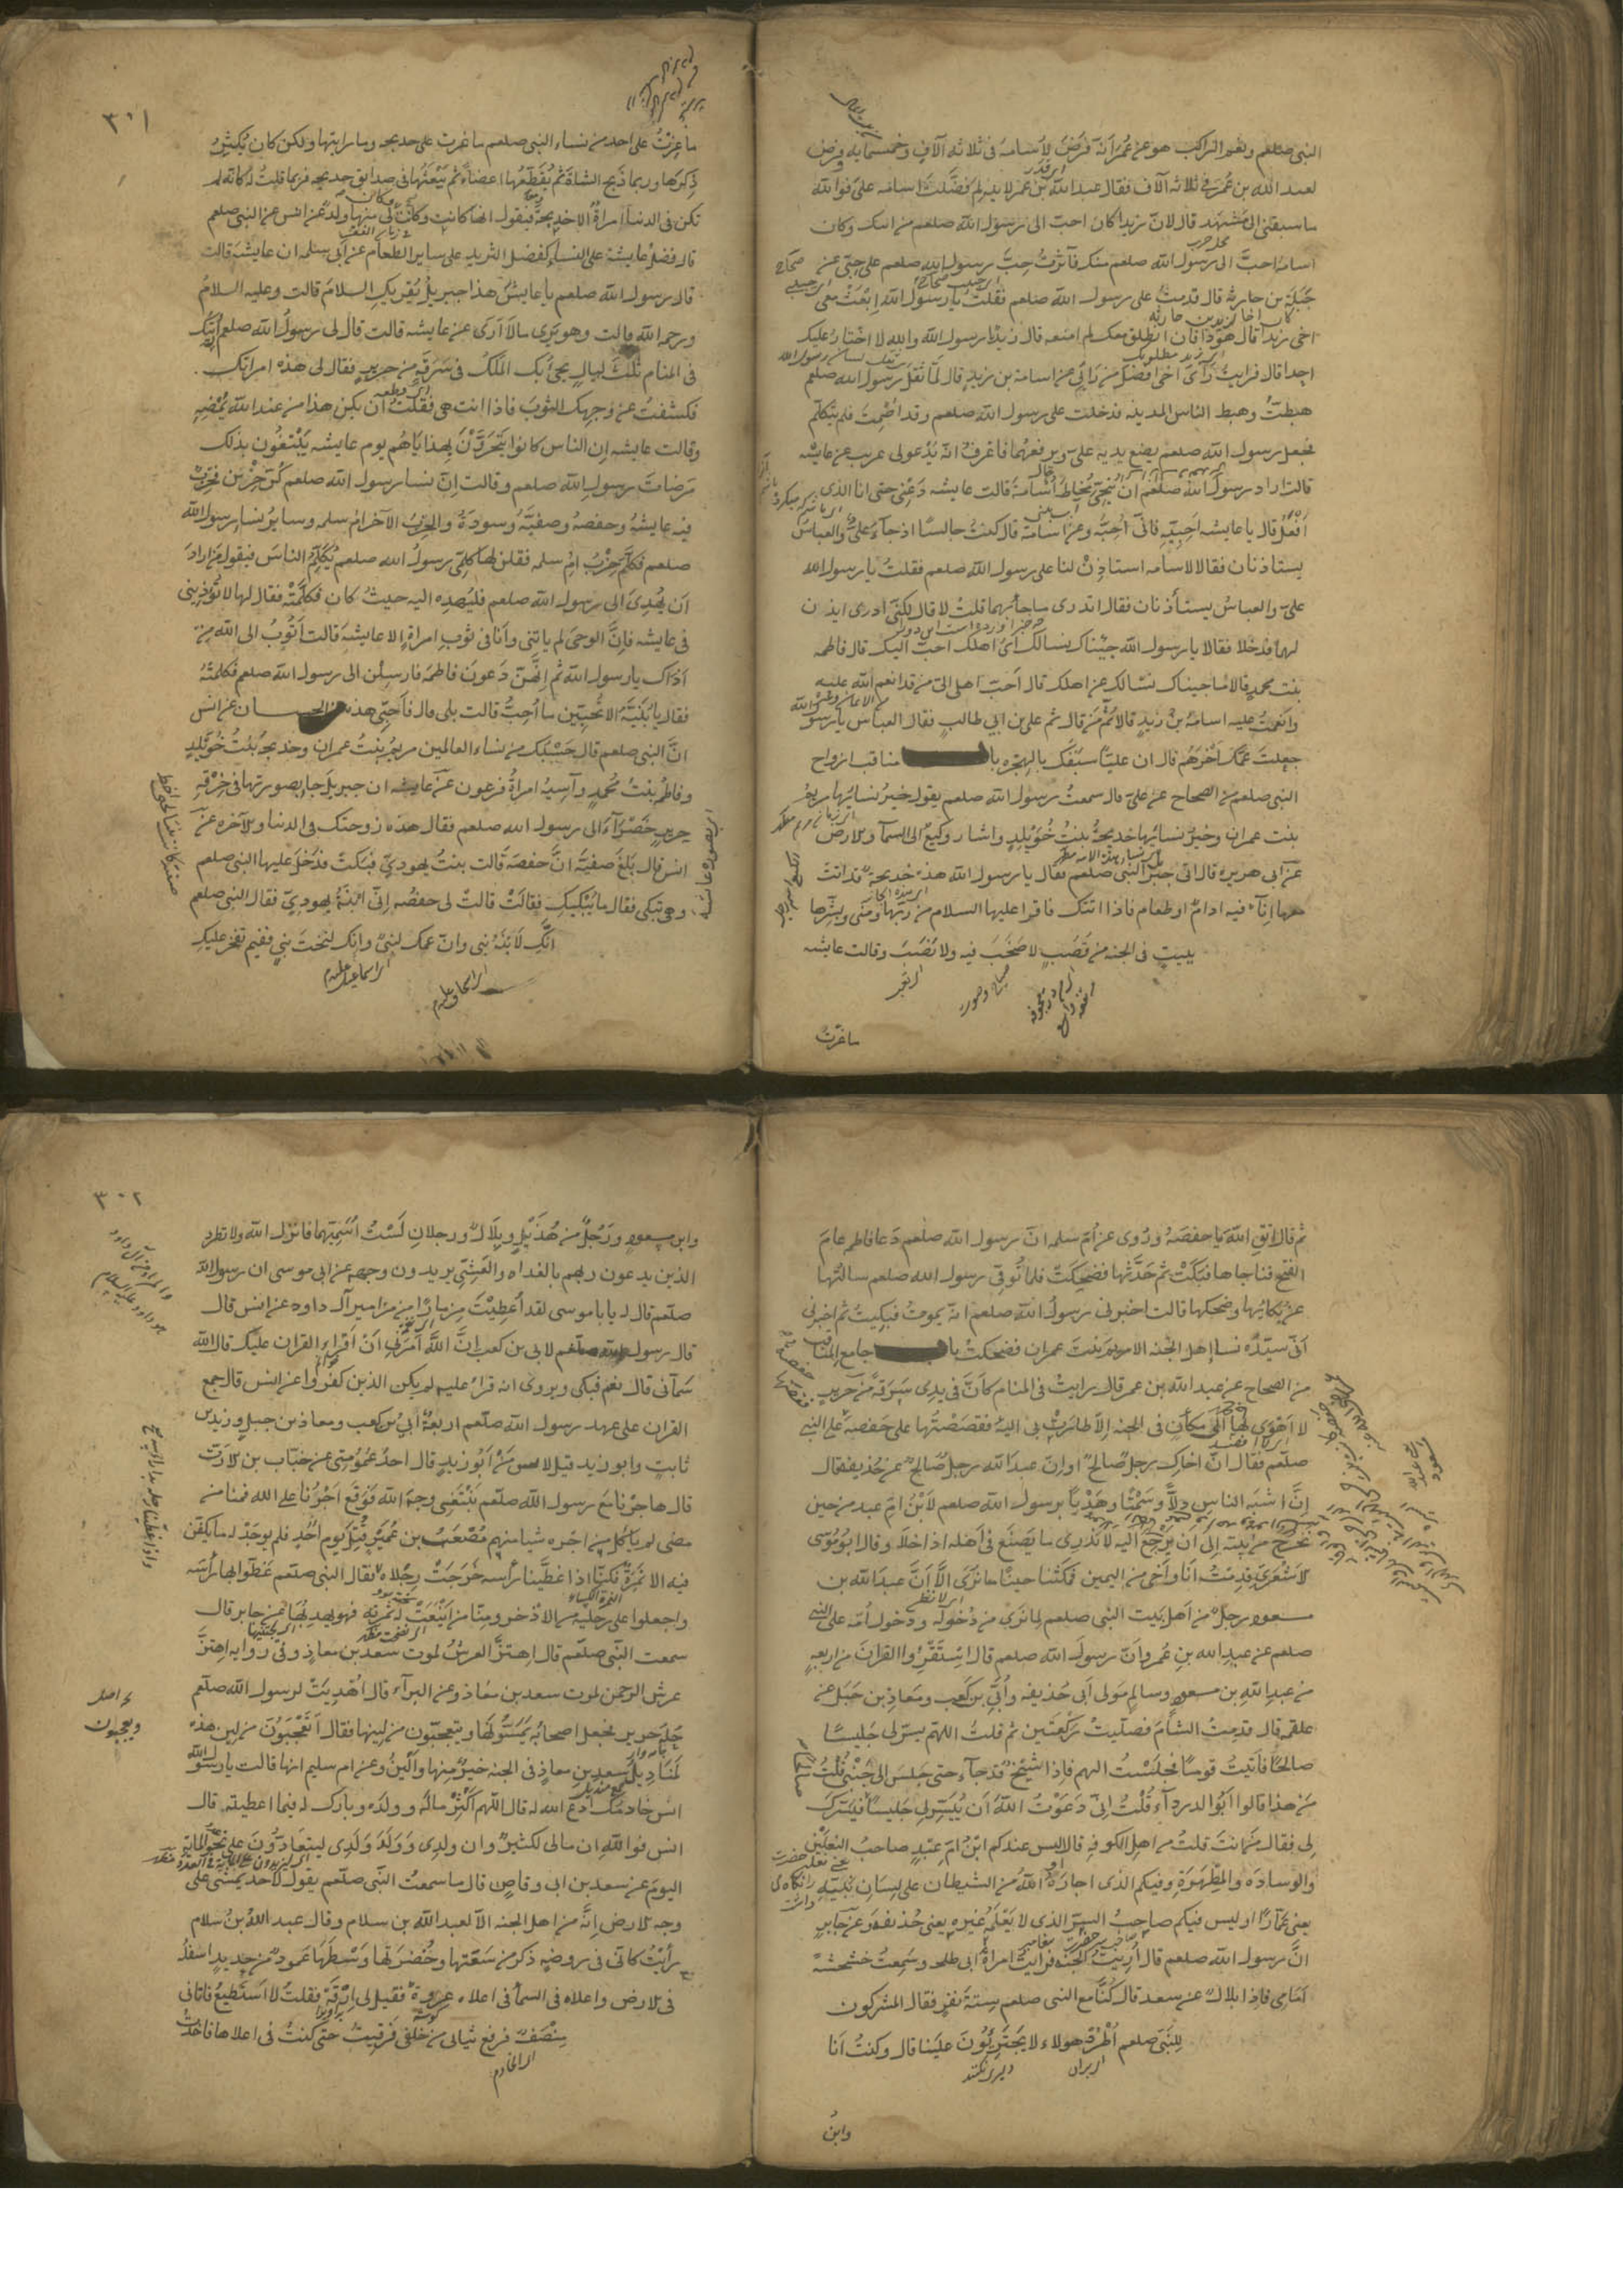 النبي صلعم ونعم الراكب هو عن عمر انه فرض لأسامة في ثلاثة آلاف وخمسمايه وفرض
لعبد الله بن عمر في ثلاثه آلاف فقال عبد الله بن عمر لابيه لم فضلت اسامه علي فوالله
ما سبقني الى مشهد قال لان زيدا كان احب الى رسول الله صلعم من ابيك وكان
اسامة احب الى رسول الله صلعم منك فآثرت حب رسول الله صلعم على حبي عن
جبلة بن حارثه قال قدمت على رسول الله صلعم فقلت يا رسول الله ابعث معي
اخي زيدا قال هو ذا فان انطلق معك لم امنعه قال زيد يا رسول الله والله لا اختار عليك
احدا قال فرايت رأى اخي افضل من رأيي عن اسامة بن زيد قال لما ثقل رسول الله صلعم
هبطت وهبط الناس المدينه فدخلت على رسول الله صلعم وقد اصمت فلم يتكلم
فجعل رسول الله صلعم يضع يديه علي ويرفعهما فاعرف انه يدعو لي غريب عن عايشه
قالت اراد رسول الله صلعم ان ينحي مخاط اسامة قالت عايشه دعني حتى انا الذي
افعل قال يا عايشه احبيه فاني احبه وعن اسامة قال كنت جالسا اذ جاء علي والعباس
يستاذنان فقالا لاسامه استاذن لنا على رسول الله صلعم فقلت يا رسول الله
علي والعباس يستأذنان فقال اتدري ما جاء بهما قلت لا قال لكني ادري ايذن
لهما فدخلا فقالا يا رسول الله جيناك نسالك اي اهلك احب اليك قال فاطمه
بنت محمد قالا ما جيناك نسالك عن اهلك قال احب اهلي الي من قد انعم الله عليه
وانعمت عليه اسامة بن زيد قالا ثم من قال ثم علي بن ابي طالب فقال العباس يا رسول الله
جعلت عمك آخرهم قال ان عليا سبقك بالهجره باب مناقب ازواج
النبي صلعم من الصحاح عن علي قال سمعت رسول الله صلعم يقول خير نسائها مريم
بنت عمران وخير نسائها خديجة بنت خويلد واشار وكيع الى السماء والارض
عن ابي هريره قال اتى جبريل النبي صلعم فقال يا رسول الله هذه خديجة قد اتت
معها اناء فيه ادام او طعام فاذا اتتك فاقرا عليها السلام من ربها ومني وبشرها
ببيت في الجنه من قصب لا صخب فيه ولا نصب وقالت عايشه
ما غرت
٣٠١
ما غرت على احد من نساء النبي صلعم ما غرت على خديجه وما رايتها ولكن كان يكثر
ذكرها وربما ذبح الشاة ثم يقطعها اعضاء ثم يبعثها في صدايق خديجه فربما قلت له كانه لم
تكن في الدنيا امراة الا خديجة فيقول انها كانت وكانت وكان لي منها ولد عن انس عن النبي صلعم
قال فضل عايشة على النساء كفضل الثريد على ساير الطعام عن ابي سلمه ان عايشة قالت
قال رسول الله صلعم يا عايش هذا جبريل يقريك السلام قالت وعليه السلام
ورحمة الله قالت وهو يرى ما لا ارى عن عايشه قالت قال لي رسول الله صلعم أريتك
في المنام ثلث ليال يجيء بك الملك في سرقة من حرير فقال لي هذه امراتك
فكشفت عن وجهك الثوب فاذا انت هي فقلت ان يكن هذا من عند الله يمضه
وقالت عايشه ان الناس كانوا يتحرون بهداياهم يوم عايشه يبتغون بذلك
مرضات رسول الله صلعم وقالت ان نساء رسول الله صلعم كن حزبين فحزب
فيه عايشة وحفصة وصفية وسودة والحزب الآخر ام سلمه وساير نساء رسول الله
صلعم فكلم حزب ام سلمه فقلن لها كلمي رسول الله صلعم يكلم الناس فيقول من اراد
ان يهدي الى رسول الله صلعم فليهده اليه حيث كان فكلمته فقال لها لا تؤذيني
في عايشه فان الوحي لم ياتني وانا في ثوب امراة الا عايشة قالت اتوب الى الله من
اذاك يا رسول الله ثم انهن دعون فاطمة فارسلن الى رسول الله صلعم فكلمته
فقال يا بنية الا تحبين ما احب قالت بلى قال فاحبي هذه من الحسان عن انس
ان النبي صلعم قال حسبك من نساء العالمين مريم بنت عمران وخديجة بنت خويلد
وفاطمة بنت محمد وآسية امراة فرعون عن عايشه ان جبريل جاء بصورتها في خرقة
حرير خضراء الى رسول الله صلعم فقال هذه زوجتك في الدنيا والآخره عن
انس قال بلغ صفية ان حفصة قالت بنت يهودي فبكت فدخل عليها النبي صلعم
وهي تبكي فقال ما يبكيك فقالت قالت لي حفصه اني ابنة يهودي فقال النبي صلعم
انك لابنة نبي وان عمك لنبي وانك لتحت نبي ففيم تفخر عليك
ثم قال اتق الله يا حفصة وروي عن ام سلمه ان رسول الله صلعم دعا فاطمه عام
الفتح فناجاها فبكت ثم حدثها فضحكت فلما توفي رسول الله صلعم سالتها
عن بكائها وضحكها قالت اخبرني رسول الله صلعم انه يموت فبكيت ثم اخبرني
اني سيدة نساء اهل الجنه الا مريم بنت عمران فضحكت باب جامع المناقب
من الصحاح عن عبد الله بن عمر قال رايت في المنام كأن في يدي سرقة من حرير
لا اهوي بها الى مكان في الجنه الا طارت بي اليه فقصصتها على حفصه على النبي
صلعم فقال ان اخاك رجل صالح او ان عبد الله رجل صالح عن حذيفه قال
ان اشبه الناس دلا وسمتا وهديا برسول الله صلعم لابن ام عبد من حين
يخرج من بيته الى ان يرجع اليه لا ندري ما يصنع في اهله اذا خلا وقال ابو موسى
الاشعري قدمت انا واخي من اليمن فمكثنا حينا ما نرى الا ان عبد الله بن
مسعود رجل من اهل بيت النبي صلعم لما نرى من دخوله ودخول امه على النبي
صلعم عن عبد الله بن عمرو ان رسول الله صلعم قال استقرؤا القران من اربعه
من عبد الله بن مسعود وسالم مولى ابي حذيفه وابي بن كعب ومعاذ بن جبل عن
علقمه قال قدمت الشام فصليت ركعتين ثم قلت اللهم يسر لي جليسا
صالحا فاتيت قوما فجلست اليهم فاذا شيخ قد جاء حتى جلس الى جنبي قلت
من هذا قالوا ابو الدرداء قلت اني دعوت الله ان ييسر لي جليسا فيسرك
لي فقال من انت قلت من اهل الكوفه قال اليس عندكم ابن ام عبد صاحب النعلين
والوسادة والمطهرة وفيكم الذي اجاره الله من الشيطان على لسان نبيه
يعني عمارا اوليس فيكم صاحب السر الذي لا يعلمه غيره يعني حذيفه وعن جابر
ان رسول الله صلعم قال أريت الجنه فرايت امراة ابي طلحه وسمعت خشخشة
امامي فاذا بلال عن سعد قال كنا مع النبي صلعم ستة نفر فقال المشركون
للنبي صلعم اطرد هولاء لا يجترئون علينا قال وكنت انا
وابن
٣٠٢
وابن مسعود ورجل من هذيل وبلال ورجلان لست اسميهما فانزل الله ولا تطرد
الذين يدعون ربهم بالغداه والعشي يريدون وجهه عن ابي موسى ان رسول الله
صلعم قال له يا با موسى لقد اعطيت مزمارا من مزامير آل داود عن انس قال
قال رسول الله صلعم لابي بن كعب ان الله امرني ان اقرا القران عليك قال الله
سماني قال نعم فبكى ويروى انه قرا عليه لم يكن الذين كفروا عن انس قال جمع
القران على عهد رسول الله صلعم اربعة ابي بن كعب ومعاذ بن جبل وزيد بن
ثابت وابو زيد قيل لانس من ابو زيد قال احد عمومتي عن خباب بن الارت
قال هاجرنا مع رسول الله صلعم نبتغي وجه الله فوقع اجرنا على الله فمنا من
مضى لم ياكل من اجره شيا منهم مصعب بن عمير قتل يوم احد فلم يوجد له ما يكفن
فيه الا نمرة فكنا اذا غطينا راسه خرجت رجلاه فقال النبي صلعم غطوا بها راسه
واجعلوا على رجليه من الاذخر ومنا من اينعت له ثمرته فهو يهدبها عن جابر قال
سمعت النبي صلعم قال اهتز العرش لموت سعد بن معاذ وفي روايه اهتز
عرش الرحمن لموت سعد بن معاذ وعن البراء قال اهديت لرسول الله صلعم
حلة حرير فجعل اصحابه يمسونها ويتعجبون من لينها فقال اتعجبون من لين هذه
لمناديل سعد بن معاذ في الجنه خير منها والين وعن ام سليم انها قالت يا رسول الله
انس خادمك ادع الله له قال اللهم اكثر ماله وولده وبارك له فيما اعطيته قال
انس فوالله ان مالي لكثير وان ولدي وولد ولدي ليتعادون على نحو الماية
اليوم عن سعد بن ابي وقاص قال ما سمعت النبي صلعم يقول لاحد يمشي على
وجه الارض انه من اهل الجنه الا لعبد الله بن سلام وقال عبد الله بن سلام
رايت كاني في روضه ذكر من سعتها وخضرتها وسطها عمود من حديد اسفله
في الارض واعلاه في السماء في اعلاه عروة فقيل لي ارقه فقلت لا استطيع فاتاني
منصف فرفع ثيابي من خلفي فرقيت حتى كنت في اعلاها فاخذت